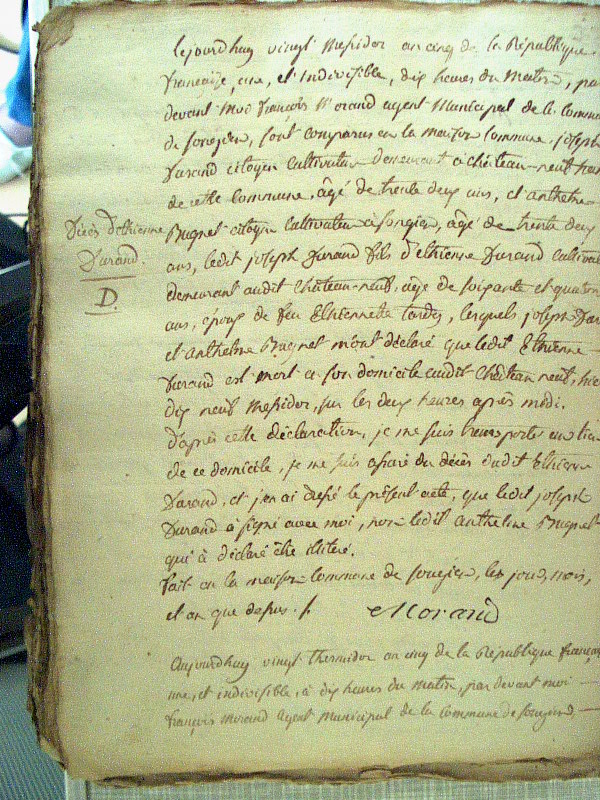 Cejourdhuy vingt Messidor an cinq de la République
francaise, une, et Indivisible, dix heures du Matin, pa
devant Moi françois Morand agent Municipal de la Commu
de songieu, sont comparus en la maison Commune joseph
Durand citoyen Cultivateur demeurant a château-neuf
de cette Commune, âgé de trente deux ans, et anthelme
Décès d'ethienne
Durand.
D.
Bugnet citoyen Cultivateur a songieu, âgé de trente deux
ans, ledit joseph Durand fils d'ethienne Durand Cultivat
demeurant audit Château-neuf, âgé de soixante et quator
ans, époux de feu Ethiennette tardy, lesquels joseph Dur
et Anthelme Bugnet m'ont déclaré que ledit Ethienne
Durand est mort a son domicile audit Château neuf, hier
dix neuf Messidor, sur les deux heures après midi.
d'après cette déclaration, je me suis transporté au lieu
de ce domicile, je me suis assuré du décès dudit Ethienn
Durand, et j'en ai dressé le présent acte, que ledit joseph
Durand a signé avec moi, non ledit anthelme Bugnet
qui à déclaré être illitéré.
fait en la maison Commune de songieu, les jour, mois,
et an que dessus. Morand
Aujourdhuy vingt thermidor an cinq de la République françai
une, et indivisible, à dix heures du matin, par devant moi
françois Morand Agent Municipal de la commune de songieu